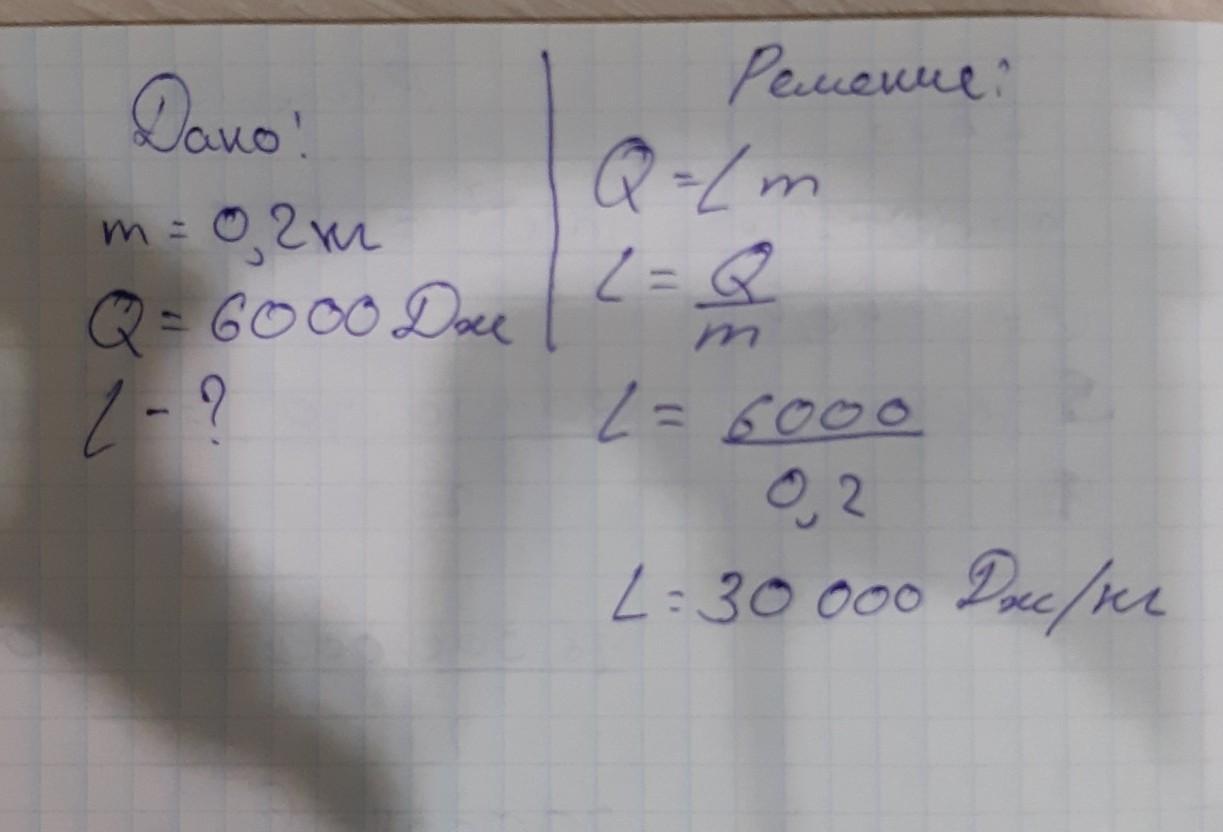 Дано:
m = 0,2 кг
Q = 6000 Дж
L - ?
Решение:
Q = L m
L = Q / m
L = 6000 / 0,2
L = 30 000 Дж/кг